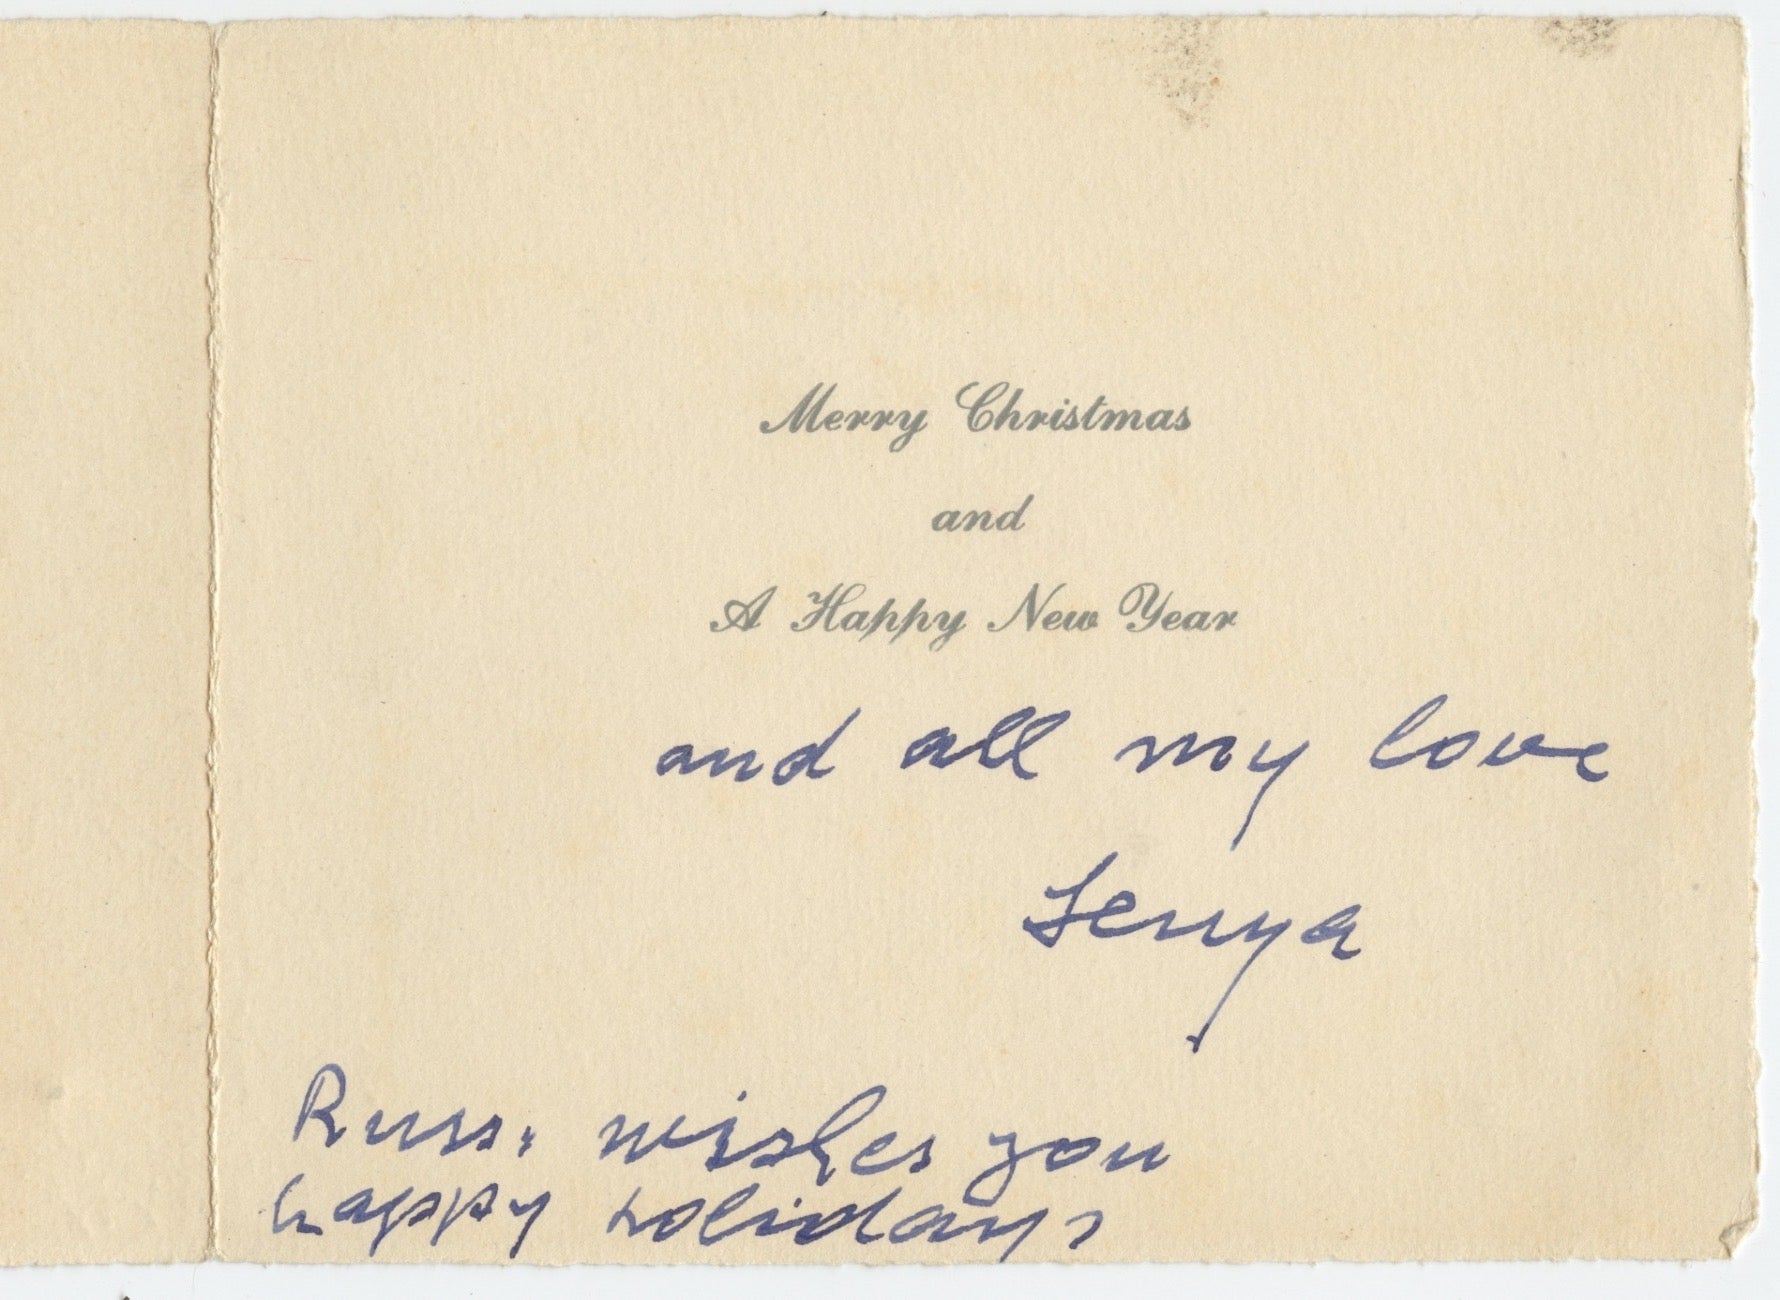 Merry Christmas
and
A Happy New Year
and all my love
Lenya
Russ. wishes you
happy holidays